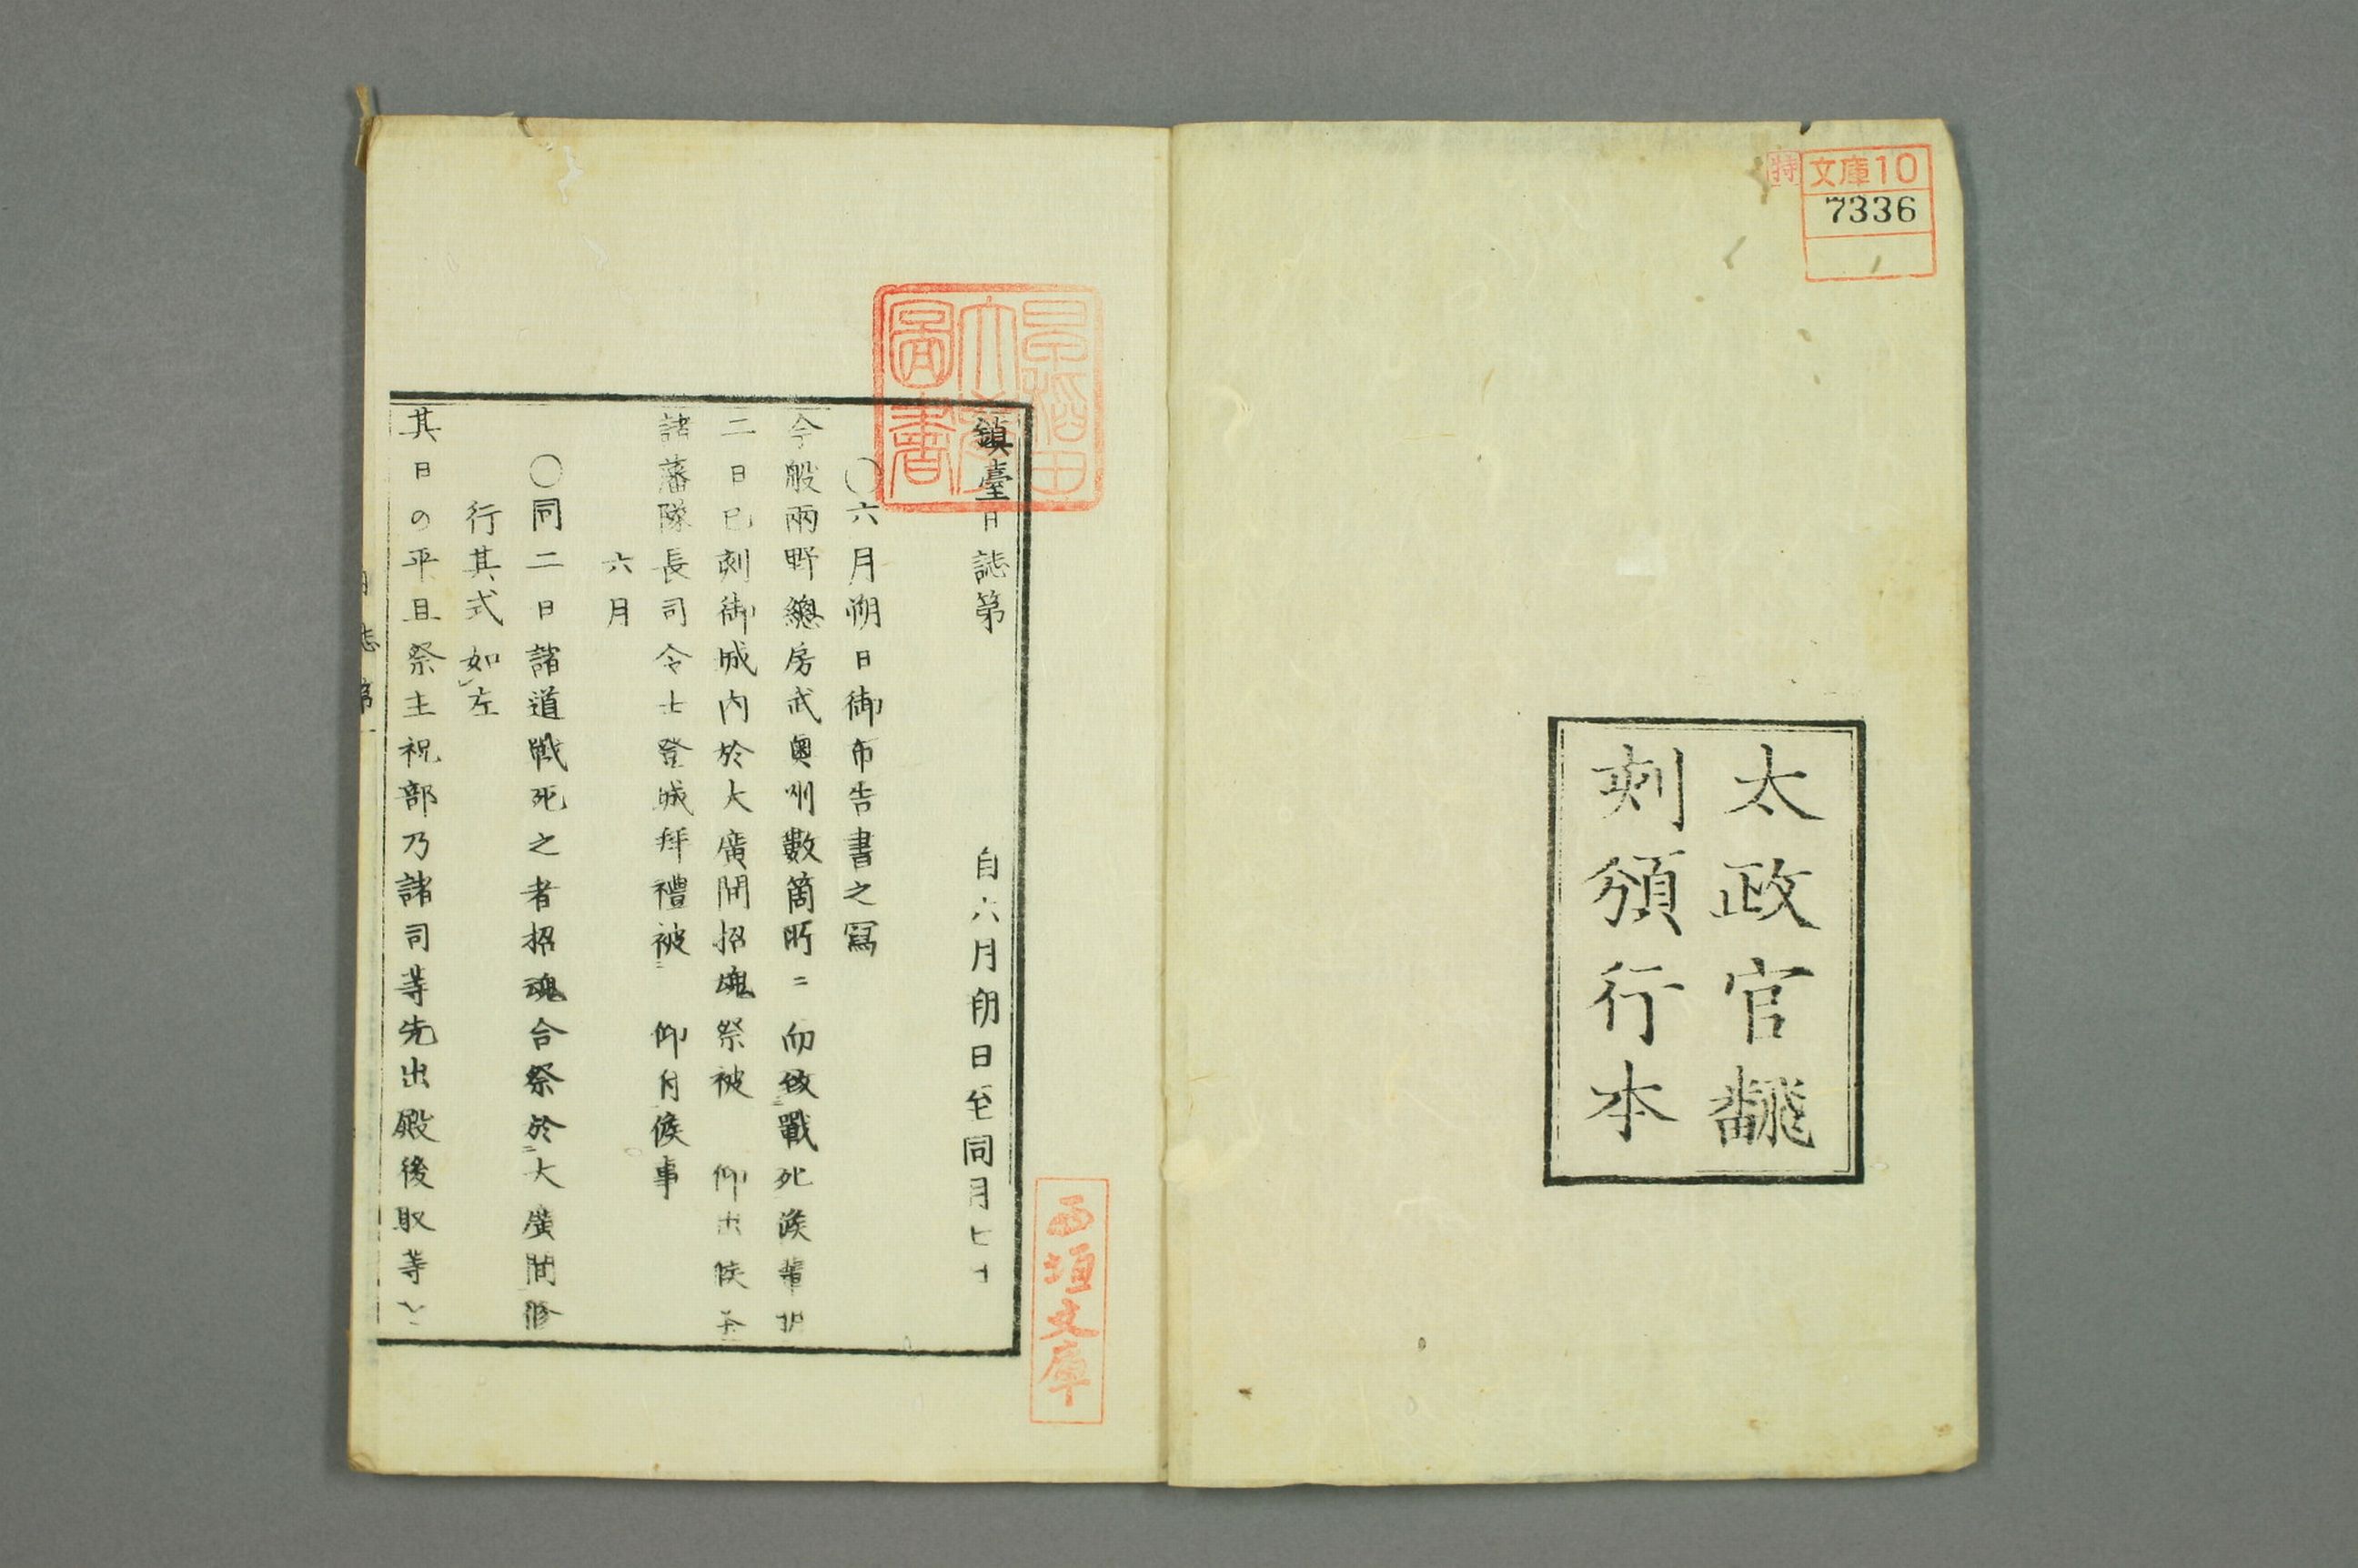 特
文庫10
7336
太政官飜
刻頒行本
早稲田
大學
圖書
鎮臺日誌第
自六月朔日至同月七
〇六月朔日御布告書之寫
今般兩野總房武奥州數箇所ニ而致戰死候輩
二日巳刻御城内於大廣間招魂祭被 仰出候
諸藩隊長司令士登城拜禮被 仰付候事
六月
〇同二日諸道戰死之者招魂合祭於大廣間修
行其式如左
其日の平旦祭主祝部乃諸司等先出殿後取等
西垣文庫
日誌第一